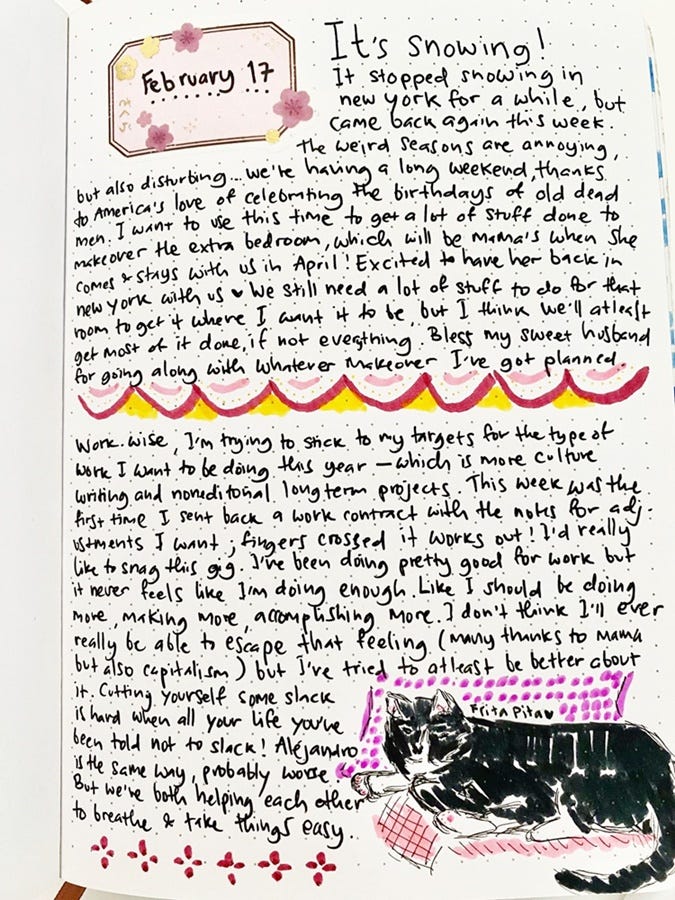 February 17
It's snowing!
It stopped snowing in
new york for a while, but
came back again this week.
The weird seasons are annoying,
but also disturbing... we're having a long weekend, thanks
to America's love of celebrating the birthdays of old dead
men. I want to use this time to get a lot of stuff done to
makeover the extra bedroom, which will be Mama's when she
comes & stays with us in April! Excited to have her back in
new york with us ♥ We still need a lot of stuff to do for that
room to get it where I want it to be, but I think we'll atleast
get most of it done, if not everything. Bless my sweet husband
for going along with whatever makeover I've got planned
Work-wise, I'm trying to stick to my targets for the type of
work I want to be doing this year — which is more culture
writing and noneditorial longterm projects. This week was the
first time I sent back a work contract with the notes for adj-
ustments I want; fingers crossed it works out! I'd really
like to snag this gig. I've been doing pretty good for work but
it never feels like I'm doing enough. Like I should be doing
more, making more, accomplishing more. I don't think I'll ever
really be able to escape that feeling (many thanks to Mama
but also capitalism) but I've tried to atleast be better about
it. Cutting yourself some slack
is hard when all your life you've
been told not to slack! Alejandro
is the same way, probably worse
But we've both helping each other
to breathe & take things easy.
Frita Pita ♥